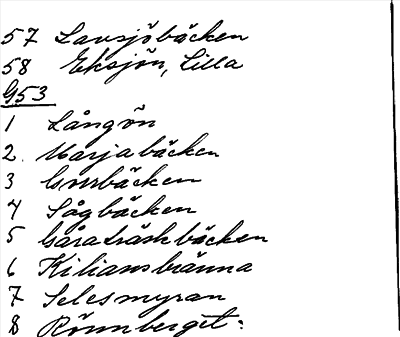 57 Lavsjöbäcken
58 Eksjön, Lilla
G53
1 Långön
2. Marjabäcken
3 bäcken
4 Sågbäcken
5 Gåraträskbäcken
6 Kiliansbränna
7 Selesmyran
8 Rönnberget.